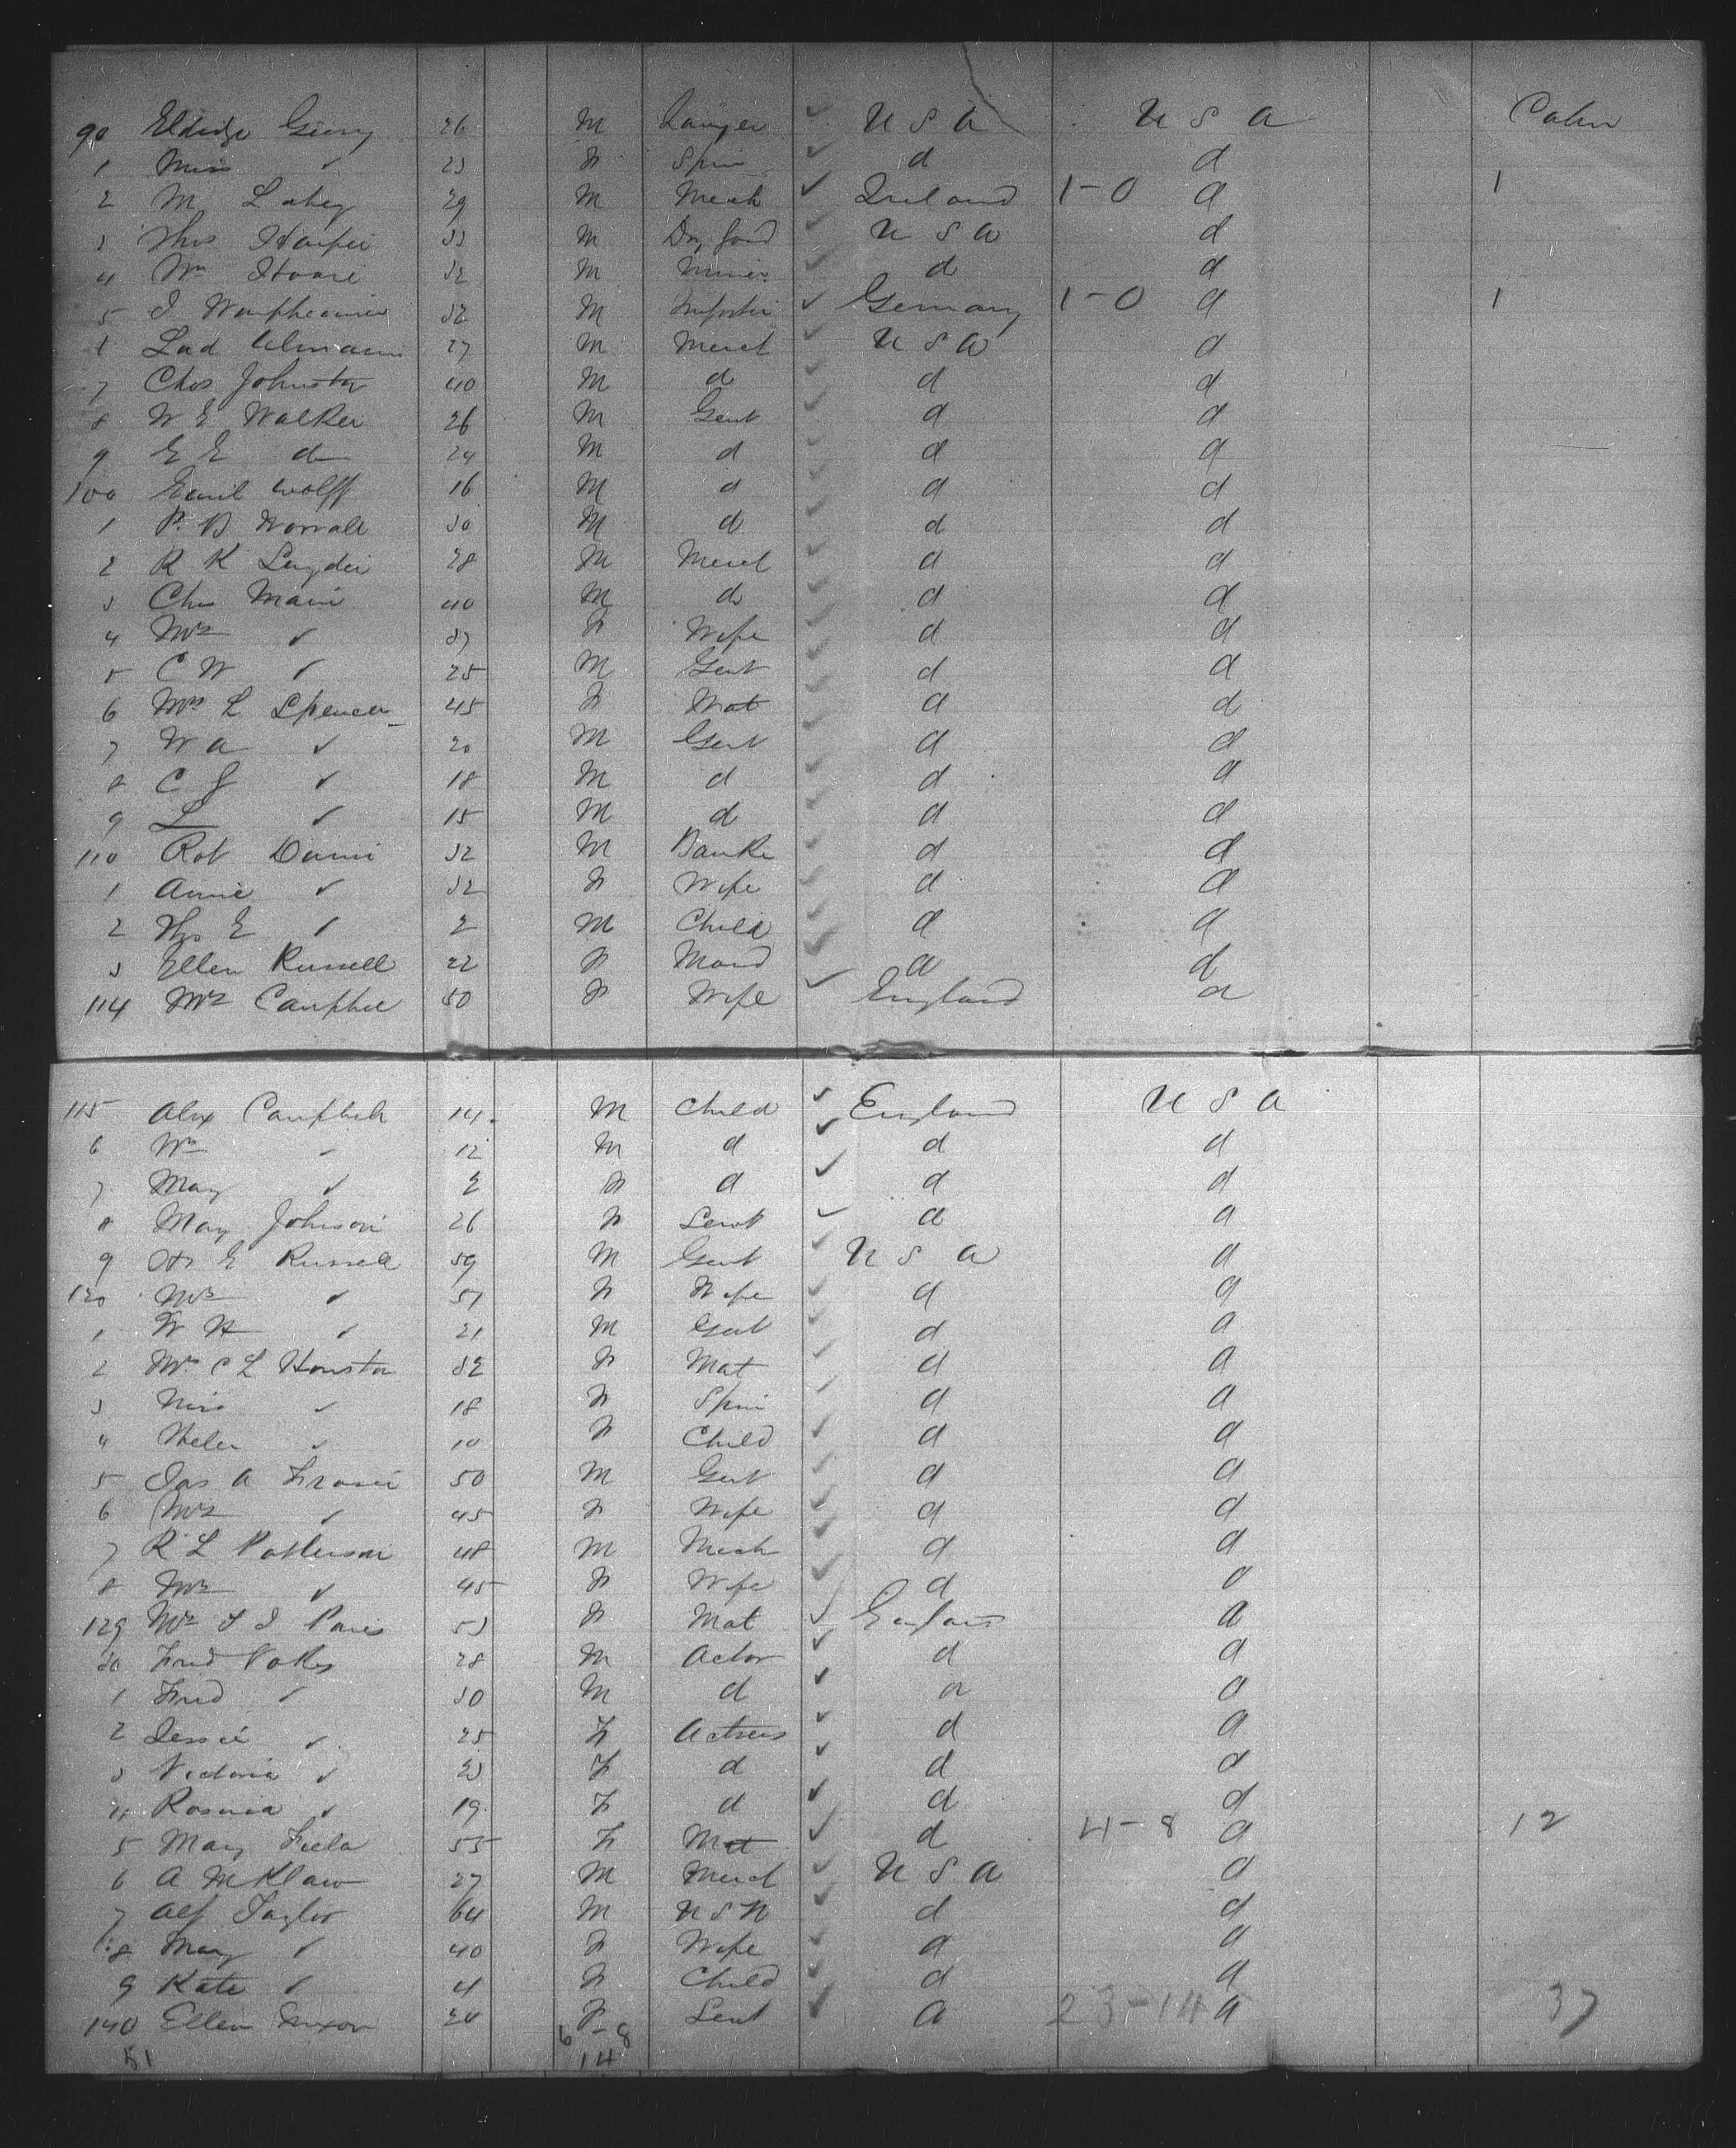 90 Eldridge Gerry 26 M Lawyer ✓ U S A U S A Cabin
1 Miss ✓ 23 F Spin ✓ d d
2 M Lahey 29 M Merch ✓ Ireland 1-0 d 1
3 Thos Harper 33 M Dry good ✓ U S A d
4 Wm Hoare 32 M Miner ✓ d d
5 I 32 M Importer ✓ Germany 1-0 d 1
6 Lad Ulmann 27 M Merct ✓ U S A d
7 Chas Johnston 40 M d ✓ d d
8 W E Walker 26 M Gent ✓ d d
9 E E do 24 M d ✓ d d
100 Emil Wolff 16 M d ✓ d d
1 P. B Worrall 30 M d ✓ d d
2 R K 28 M Merct ✓ d d
3 Chas Main 40 M d ✓ d d
4 Mrs ✓ 37 F Wife ✓ d d
5 C W ✓ 25 M Gent ✓ d d
6 Mrs L Spencer 45 F Mat ✓ d d
7 W A ✓ 20 M Gent ✓ d d
8 C J ✓ 18 M d ✓ d d
9 L ✓ 15 M d ✓ d d
110 Rob 32 M Banke ✓ d d
1 Annie ✓ 32 F Wife ✓ d d
2 Ths E ✓ 2 M Child ✓ d d
3 Ellen Russell 22 F Maid ✓ d d
114 Mrs Campbel 50 F Wife ✓ England d
115 Alex Campbell 14 M Child ✓ England U S A
6 Wm ✓ 12 M d ✓ d d
7 May ✓ 2 F d ✓ d d
8 Mary Johnson 26 F Servt ✓ d d
9 H E Russell 59 M Gent ✓ U S A d
120 Mrs ✓ 51 F Wife ✓ d d
1 W H ✓ 21 M Gent ✓ d d
2 Mrs C L Houston 32 F Mat ✓ d d
3 Miss ✓ 18 F Spin ✓ d d
4 Helen ✓ 10 F Child ✓ d d
5 Jas A Frasei 50 M Gent ✓ d d
6 Mrs ✓ 45 F Wife ✓ d d
7 R L Patterson 48 M Merch ✓ d d
8 Mrs ✓ 45 F Wife ✓ d d
129 Mrs 53 F Mat ✓ England d
30 Fred Vokes 28 M Actor ✓ d d
1 Fred ✓ 30 M d ✓ d d
2 Jessie ✓ 25 F Actress ✓ d d
3 Victoria ✓ 23 F d ✓ d d
4 Rosina ✓ 19 F d ✓ d d
5 Mary Field 55 F Mat ✓ d 4-8 d 12
6 A McKlaw 27 M Merct ✓ U S A d
7 Alf Taylor 64 M U S N ✓ d d
8 Mary ✓ 40 F Wife ✓ d d
9 Kate ✓ 4 F Child ✓ d d
140 Ellen Nixon 24 F Sent ✓ d 23-14 d 37
51 6-8
14